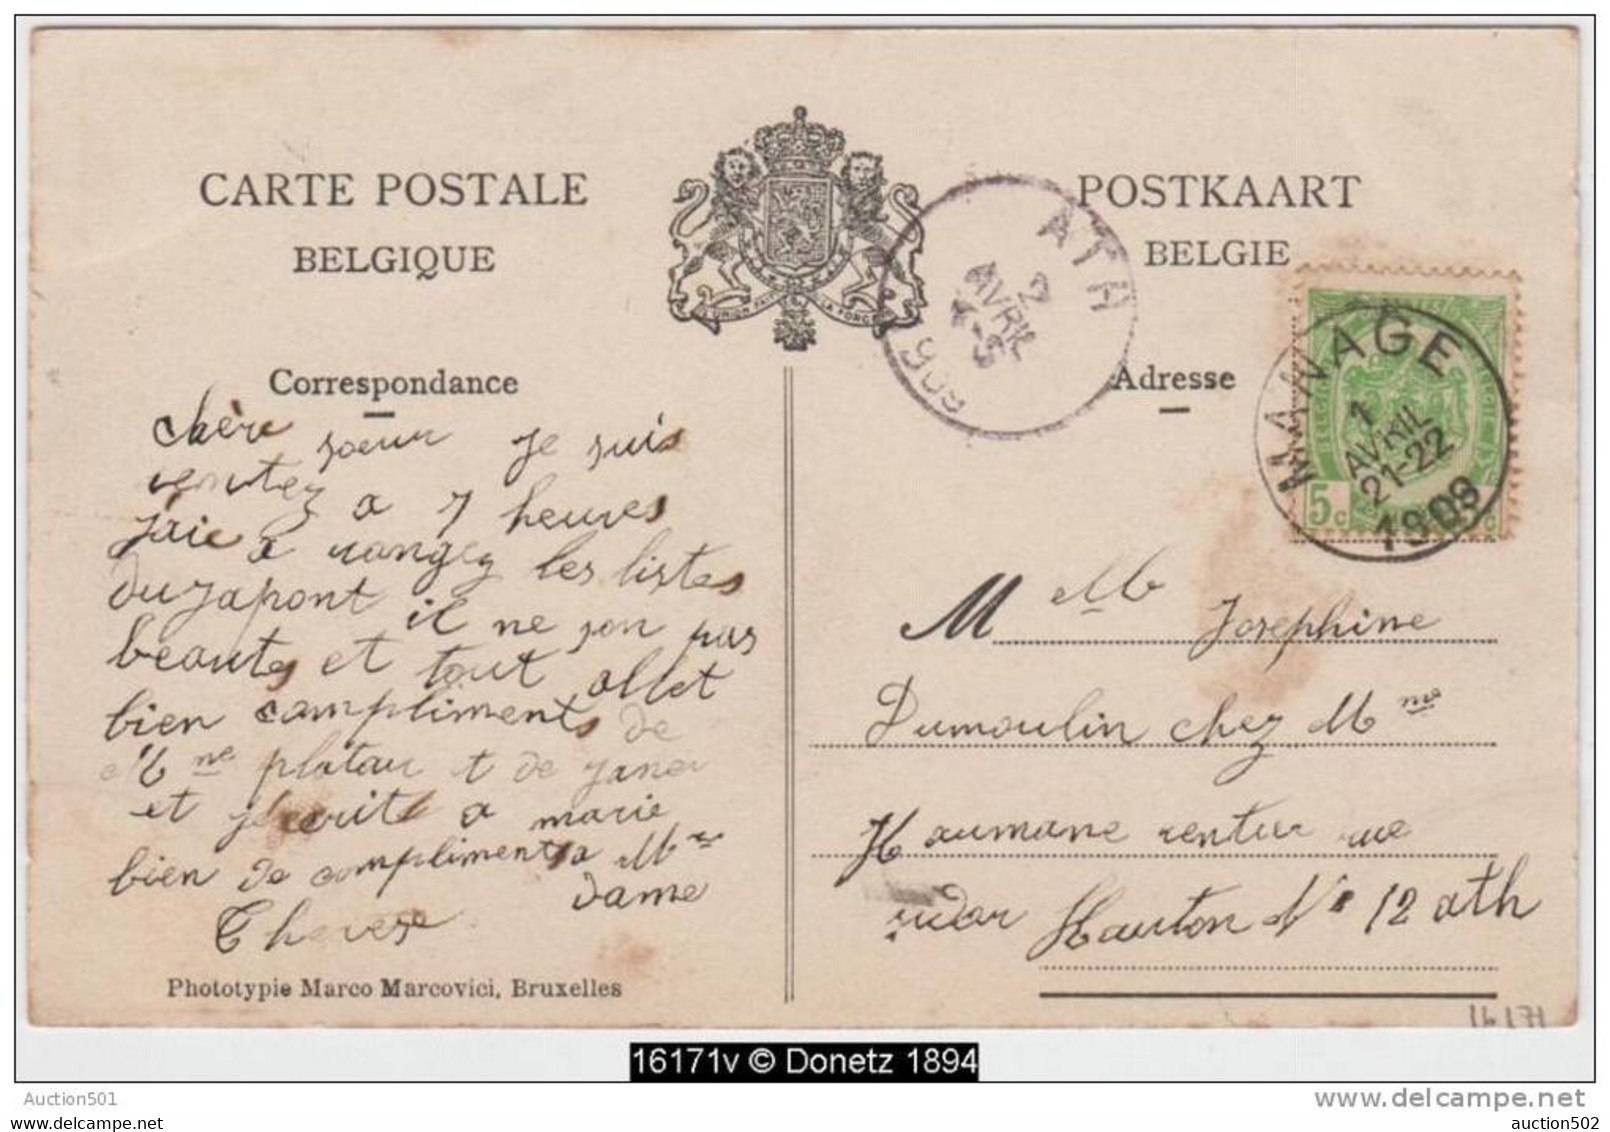 CARTE POSTALE
BELGIQUE
POSTKAART
BELGIE
L'UNION FAIT LA FORCE
ATH
2
AVRIL
1909
MANAGE
1
AVRIL
21-22
1909
5c
Correspondance
Adresse
chère soeur je suis
rentez a 7 heures
jaie a rangez les listes
du japont il ne son pas
beautes et tout allet
bien compliments de
Mme platau t de
et a marie
bien de compliments a Mme
dame
Therese
Phototypie Marco Marcovici, Bruxelles
M Melle Josephine
Dumoulin chez Mme
Haumane rentier rue
Hauton N° 12 ath
16171
16171v © Donetz 1894
Auction501
www.delcampe.net
auction502